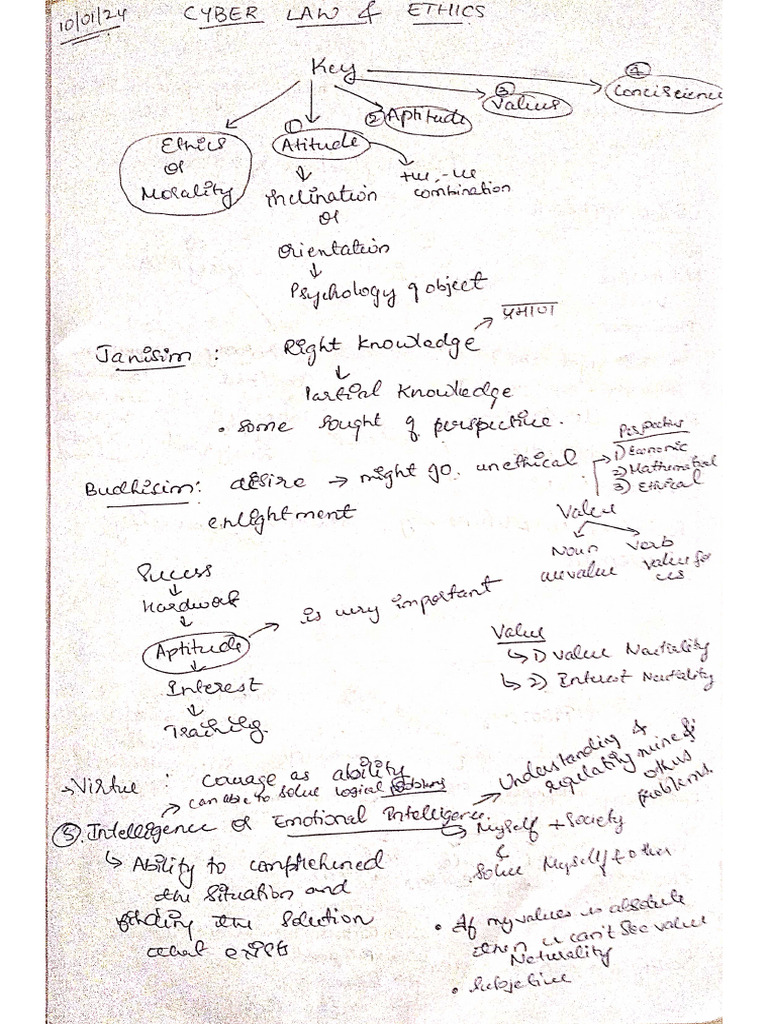 10/01/24
CYBER LAW & ETHICS
Key
Ethics
or
Morality
① Atitude
② Aptitude
③ Values
④ Conciscience
+ve, -ve
combination
Inclination
or
orientation
Psychology of object
Janisim : Right Knowledge
प्रमाण
Partial Knowledge
• Some sought of perspective.
Budhisim: desire → might go unethical
enlightment
Perspective
1) Economic
2) Mathematical
3) Ethical
Value
Noun
Verb
value for
us
Success
Hardwork
Aptitude
is very important
Interest
Training
Value
1) Value Neutrality
2) Interest Neutrality
Virtue : Courage as ability
can able to solve logical problems
⑤. Intelligence or Emotional Intelligence.
Understanding &
regulating mine &
others
problems.
Ability to comprehened
the situation and
finding the solution
that exists
Myself + Society
Solve Myself & other
• If my values is absolute
then u can't see value
Neturality
• Subjetive